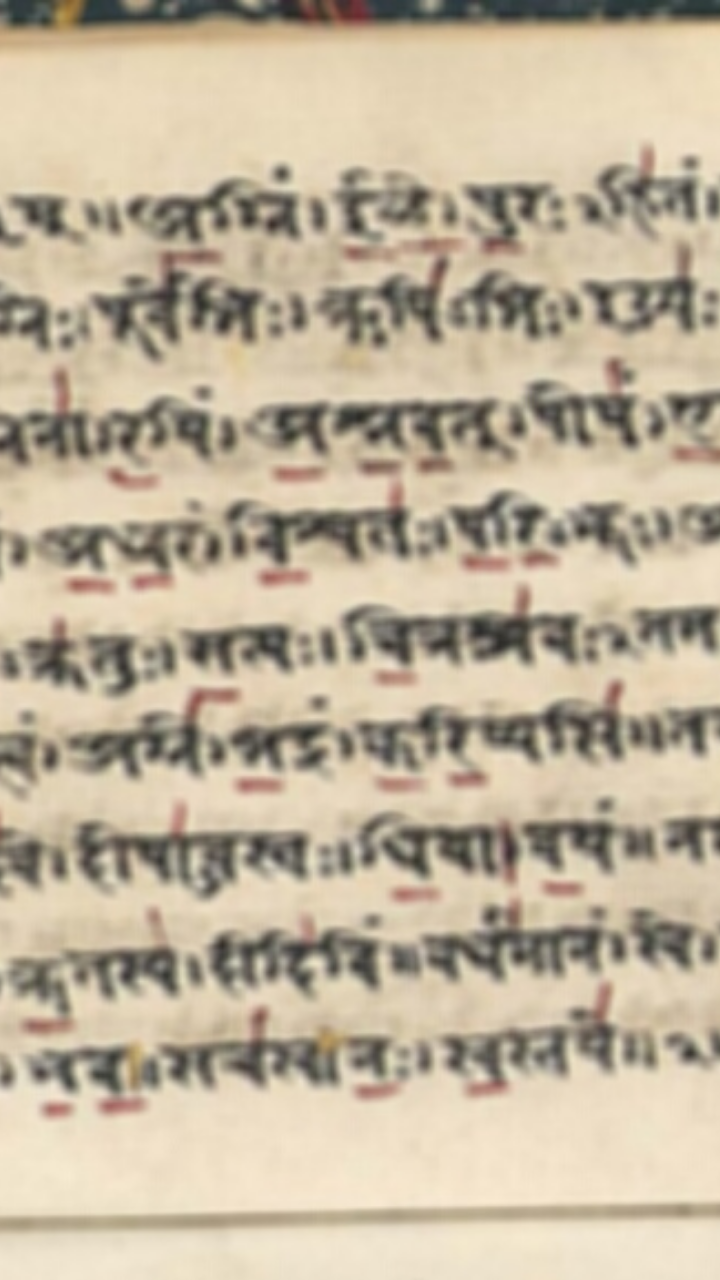 म् ॥ अग्निं । ईळे । पुरःऽहितं ।
पूर्वेभिः । ऋषिऽभिः । ईड्यः
रयिं । अश्नवत् । पोषं । ए
। अध्वरं । विश्वतः । परिऽभूः । अ
क्रतुः । सत्यः । चित्रश्रवःऽतम
। अग्ने । भद्रं । करिष्यसि ॥ त
दोषाऽवस्तः । धिया । वयं ॥ न
ऋतस्य । दीदिविं ॥ वर्धमानं । स्वे ।
। सचस्व । नः । स्वस्तये ॥